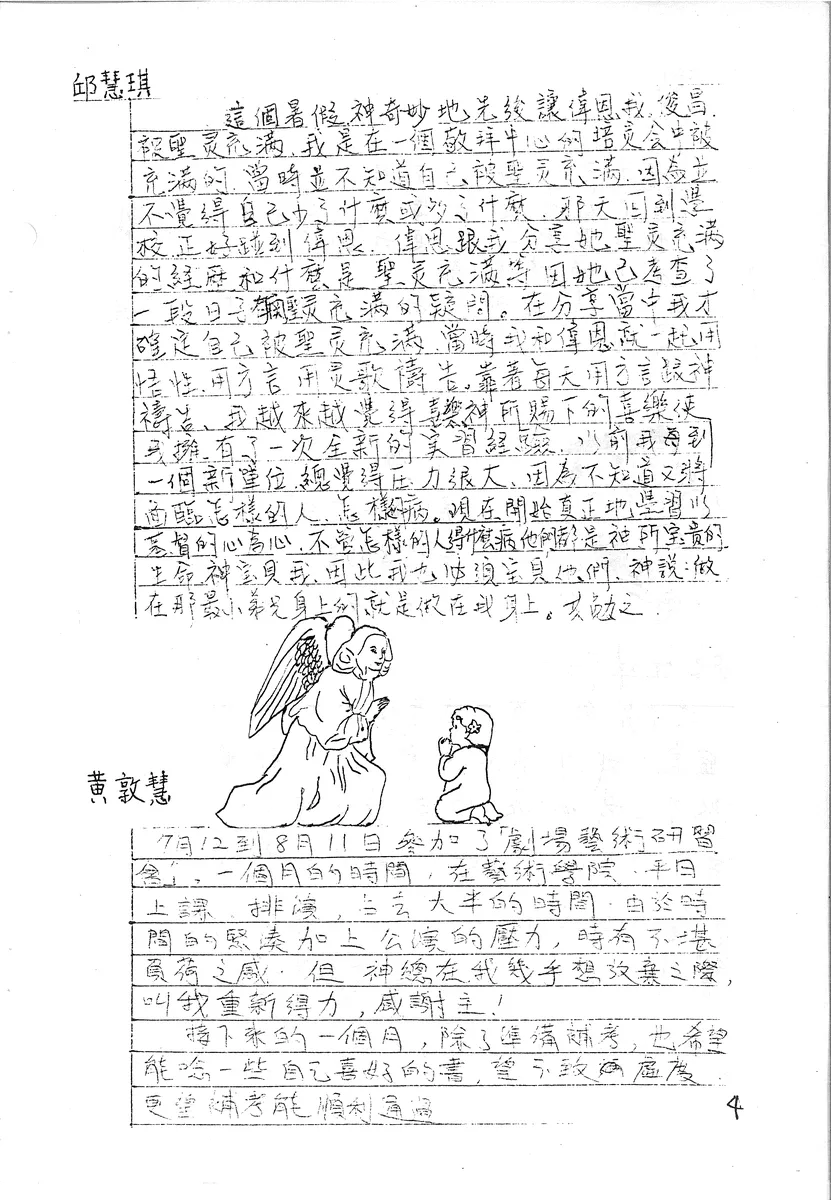 邱慧琪
這個暑假,神奇妙地先後讓偉恩,我,俊昌,
被聖灵充满,我是在一個敬拜中心的培灵会中被
充満的,當時並不知道自己被聖灵充满,因為並
不覺得自己少了什麼或多了什麼,那天回到學
校正好碰到偉恩,偉恩跟我分享她聖灵充满
的経歷和什麼是聖灵充满等,因她已考查了
一段日子有關聖灵充满的疑問。在分享當中我才
確定自己被聖灵充满,當時我和偉恩就一起用
悟性,用方言,用灵歌禱告。靠著每天用方言跟神
禱告,我越來越覺得喜樂,神所賜下的喜樂使
我擁有了一次全新的实習経驗,以前我每到
一個新單位,總覺得压力很大,因為不知道又將
面臨怎樣的人,怎樣的病。現在開始真正地學習以
基督的心為心,不管怎樣的人得什麼病,他們都是神所宝贵的
生命,神宝貝我,因此我也必須宝貝他們,神說:做
在那最小弟兄身上的就是做在我身上。共勉之.
黃敦慧
7月12到8月11日參加了「劇場藝術研習
會」,一個月的時間,在藝術學院,平日
上課、排演,占去大半的時間,由於時
間的緊湊加上公演的壓力,時有不堪
負荷之感,但神總在我幾乎想放棄之際,
叫我重新得力,感謝主!
接下來的一個月,除了準備補考,也希望
能唸一些自己喜好的書,望不致虛度,
更望補考能順利通過
4